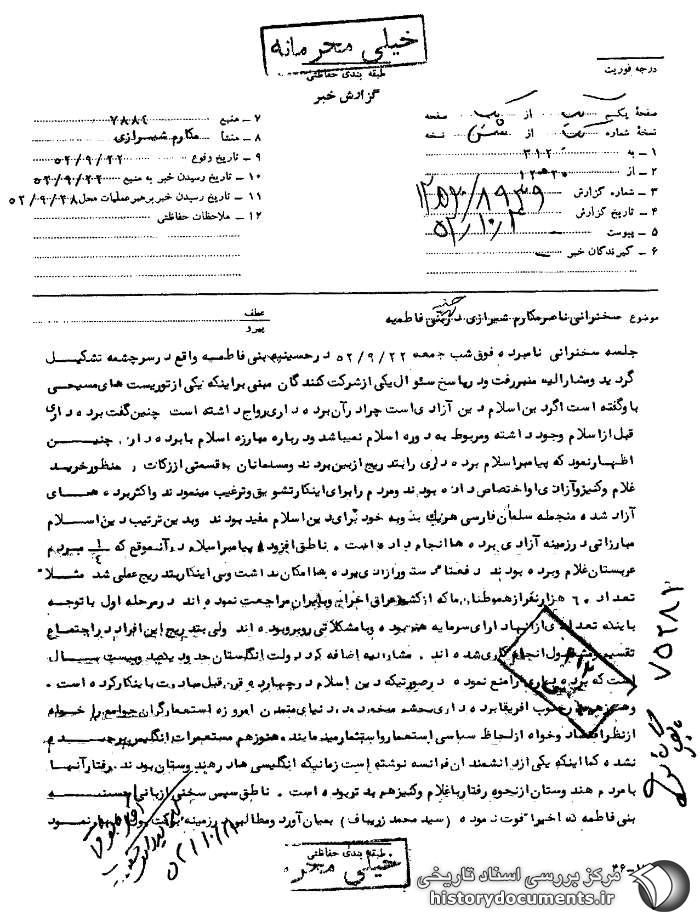 خیلی محرمانه
طبقه بندی حفاظتی
گزارش خبر
درجه فوریت
صفحهٔ یکم از یک صفحه
نسخهٔ شماره یک از شش نسخه
۱ ـ به ۳۱۲
۲ ـ از ۲۰ ه ۱۲
۳ ـ شماره گزارش
۴ ـ تاریخ گزارش ۵۲/۱۰/۳
۵ ـ پیوست
۶ ـ گیرندگان خبر
۷ ـ منبع ۷۸۸۴
۸ ـ منشأ مکارم شیرازی
۹ ـ تاریخ وقوع ۵۲/۹/۲۲
۱۰ ـ تاریخ رسیدن خبر به منبع ۵۲/۹/۲۲
۱۱ ـ تاریخ رسیدن خبر برهبر عملیات محل ۵۲/۹/۲۸
۱۲ ـ ملاحظات حفاظتی
موضوع سخنرانی ناصر مکارم شیرازی در حسینیه بنی فاطمیه
عطف
پیرو
جلسه سخنرانی نامبرده فوق شب جمعه ۵۲/۹/۲۲ در حسینیه بنی فاطمیه واقع در سرچشمه تشکیل
گردید و مشارالیه منبر رفت و در پاسخ سئوال یکی از شرکت کنندگان مبنی بر اینکه یکی از توریست های مسیحی
باو گفته است اگر دین اسلام دین آزادی است چرا در آن برده داری رواج داشته است چنین گفت برده داری
قبل از اسلام وجود داشته و مربوط به دوره اسلام نمیباشد و درباره مبارزه اسلام با برده داری چنین
اظهار نمود که پیامبر اسلام برده داری را بتدریج از بین بردند و مسلمانان به قسمتی از زکات را منظور خرید
غلام و کنیز و آزادی او اختصاص داده بودند و مردم را برای اینکار تشویق و ترغیب مینمودند و اکثر برده های
آزاد شده منجمله سلمان فارسی هریک بنوبه خود برای دین اسلام مفید بودند و بدین ترتیب دین اسلام
مبارزاتی در زمینه آزادی برده ها انجام داده است . ناطق افزود پیامبر اسلام در آنموقع که ۱/۴ مردم
عربستان غلام و برده بودند دفعتاً دستور آزادی برده ها امکان نداشت ولی اینکار بتدریج عملی شد مثلاً
تعداد ۶۰ هزار نفر از هموطنان ما که از کشور عراق اخراج و بایران مراجعت نموده اند در مرحله اول با توجه
باینکه تعدادی از آنها دارای سرمایه هم بوده و با مشکلاتی روبرو بوده اند ولی بتدریج این افراد در اجتماع
تقسیم و مشغول انجام کاری شده اند . مشارالیه اضافه کرد دولت انگلستان حدود یکصد و بیست سال
است که برده داری را منع نموده در صورتیکه دین اسلام در چهارده قرن قبل مبادرت باینکار کرده است .
و هنوز هم در جنوب افریقا برده داری بچشم میخورد در دنیای متمدن امروزه استعمارگران جوامع را خواه
از نظر اقتصاد و خواه از لحاظ سیاسی استعمار و استثمار مینمایند هنوز هم مستعمرات انگلیس برچیده
نشده کما اینکه یکی از دانشمندان فرانسه نوشته است زمانیکه انگلیسی ها در هندوستان بودند رفتار آنها
با مردم هندوستان از نحوه رفتار با غلام و کنیز هم بدتر بوده است . ناطق سپس سخنی از بانی حسینیه
بنی فاطمه که اخیراً فوت نموده (سید محمد زریباف) بمیان آورد و مطالبی در زمینه
۳۱۲
۷۵۲۸۲
طبقه بندی حفاظتی
خیلی محرمانه
مرکز بررسی اسناد تاریخی
historydocuments.ir